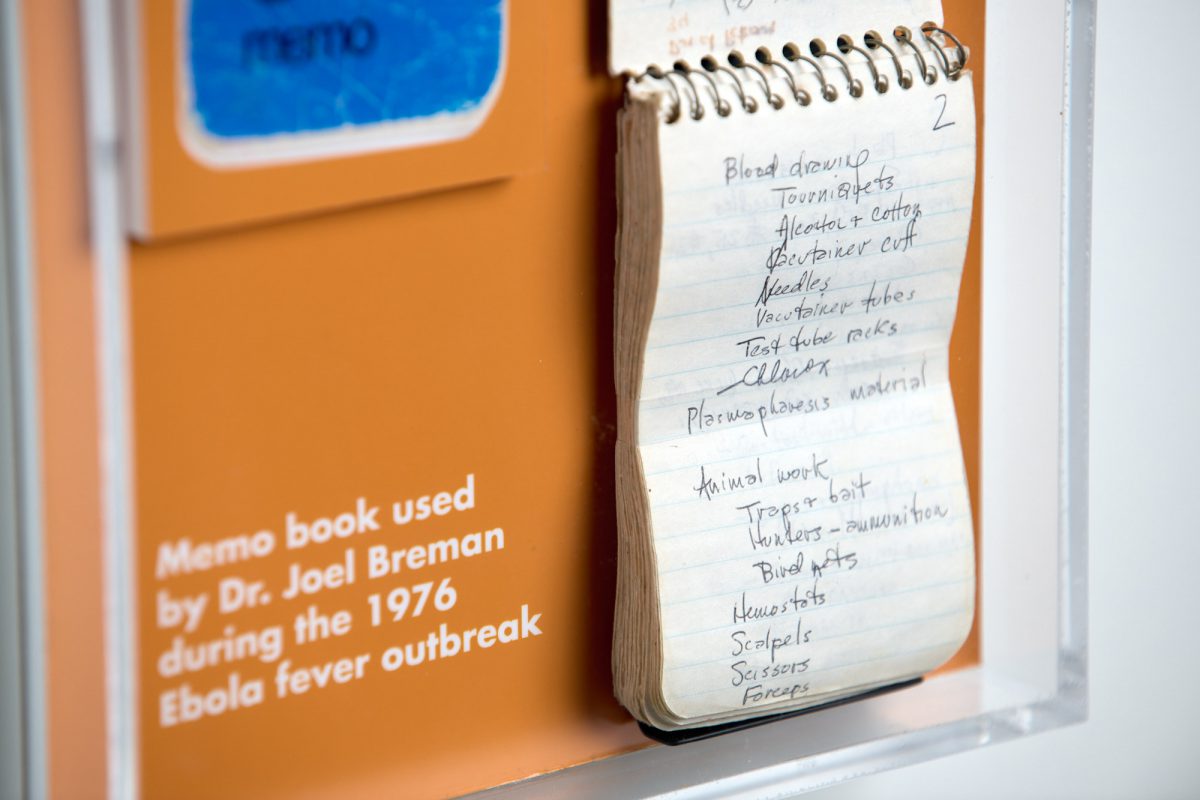 memo
Memo book used
by Dr. Joel Breman
during the 1976
Ebola fever outbreak
2
Blood drawing
Tourniquets
Alcohol + cotton
Vacutainer cuff
Needles
Vacutainer tubes
Test tube racks
Chlorox
Plasmapharesis material
Animal work
Traps + bait
Hunters - ammunition
Bird nets
Hemostats
Scalpels
Scissors
Forceps